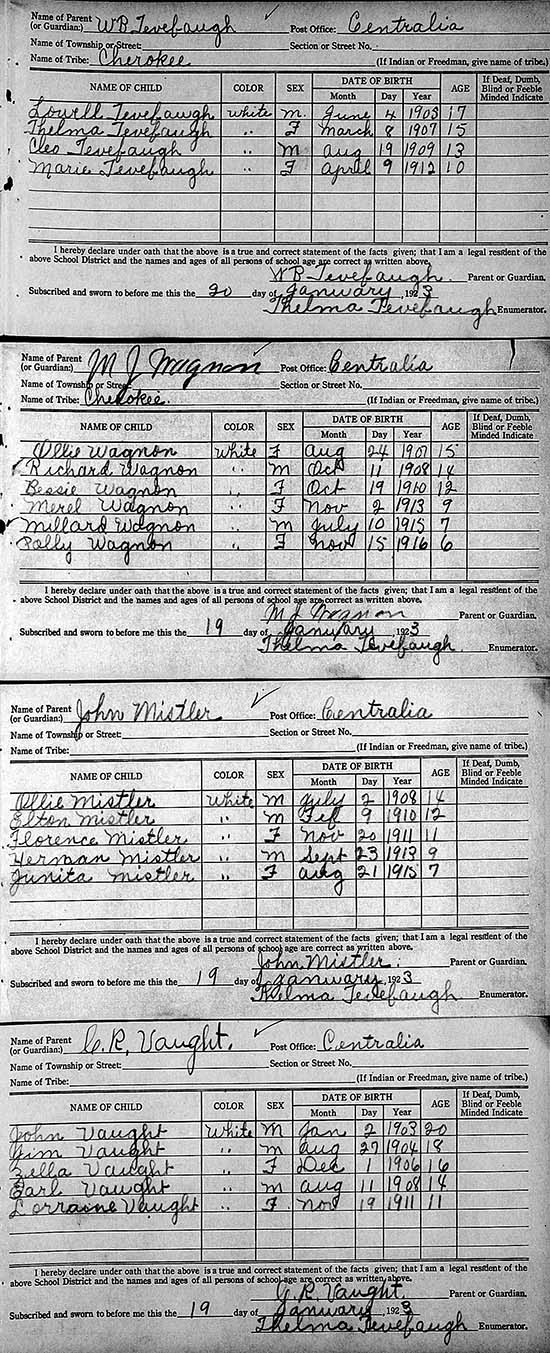 Name of Parent (or Guardian:) WB Tevebaugh Post Office: Centralia
Name of Township or Street: Section or Street No.
Name of Tribe: Cherokee (If Indian or Freedman, give name of tribe.)
NAME OF CHILD COLOR SEX DATE OF BIRTH Month Day Year AGE If Deaf, Dumb, Blind or Feeble Minded Indicate
Lowell Tevebaugh White M. June 4 1903 17
Thelma Tevebaugh " F March 8 1907 15
Cleo Tevebaugh " M Aug 19 1909 13
Marie Tevebaugh " F April 9 1912 10
I hereby declare under oath that the above is a true and correct statement of the facts given; that I am a legal resident of the
above School District and the names and ages of all persons of school age are correct as written above.
WB Tevebaugh. Parent or Guardian.
Subscribed and sworn to before me this the 20 day of January, 1923
Thelma Tevebaugh Enumerator.
Name of Parent (or Guardian:) M J Wagnon Post Office: Centralia
Name of Township or Street: Section or Street No.
Name of Tribe: Cherokee. (If Indian or Freedman, give name of tribe.)
NAME OF CHILD COLOR SEX DATE OF BIRTH Month Day Year AGE If Deaf, Dumb, Blind or Feeble Minded Indicate
Ollie Wagnon White F Aug 24 1907 15
Richard Wagnon " M Oct 11 1908 14
Bessie Wagnon " F Oct 19 1910 12
Merel Wagnon " F Nov 2 1913 9
Millard Wagnon " M July 10 1915 7
Polly Wagnon " F Nov 15 1916 6
I hereby declare under oath that the above is a true and correct statement of the facts given; that I am a legal resident of the
above School District and the names and ages of all persons of school age are correct as written above.
M J Wagnon Parent or Guardian.
Subscribed and sworn to before me this the 19 day of January, 1923
Thelma Tevebaugh. Enumerator.
Name of Parent (or Guardian:) John Mistler Post Office: Centralia
Name of Township or Street: Section or Street No.
Name of Tribe: (If Indian or Freedman, give name of tribe.)
NAME OF CHILD COLOR SEX DATE OF BIRTH Month Day Year AGE If Deaf, Dumb, Blind or Feeble Minded Indicate
Ollie Mistler White M July 2 1908 14
Elton Mistler " M Feb 9 1910 12
Florence Mistler " F Nov 20 1911 11
Herman Mistler " M Sept 23 1913 9
Junita Mistler " F Aug 21 1915 7
I hereby declare under oath that the above is a true and correct statement of the facts given; that I am a legal resident of the
above School District and the names and ages of all persons of school age are correct as written above.
John Mistler. Parent or Guardian.
Subscribed and sworn to before me this the 19 day of January, 1923
Thelma Tevebaugh Enumerator.
Name of Parent (or Guardian:) C. R. Vaught. Post Office: Centralia
Name of Township or Street: Section or Street No.
Name of Tribe: (If Indian or Freedman, give name of tribe.)
NAME OF CHILD COLOR SEX DATE OF BIRTH Month Day Year AGE If Deaf, Dumb, Blind or Feeble Minded Indicate
John Vaught White M Jan 2 1903 20
Jim Vaught " M Aug 27 1904 18
Zella Vaught " F Dec 1 1906 16
Earl Vaught " M Aug 11 1908 14
Lorraine Vaught " F. Nov 19 1911 11
I hereby declare under oath that the above is a true and correct statement of the facts given; that I am a legal resident of the
above School District and the names and ages of all persons of school age are correct as written above.
C. R. Vaught. Parent or Guardian.
Subscribed and sworn to before me this the 19 day of January, 1923
Thelma Tevebaugh Enumerator.